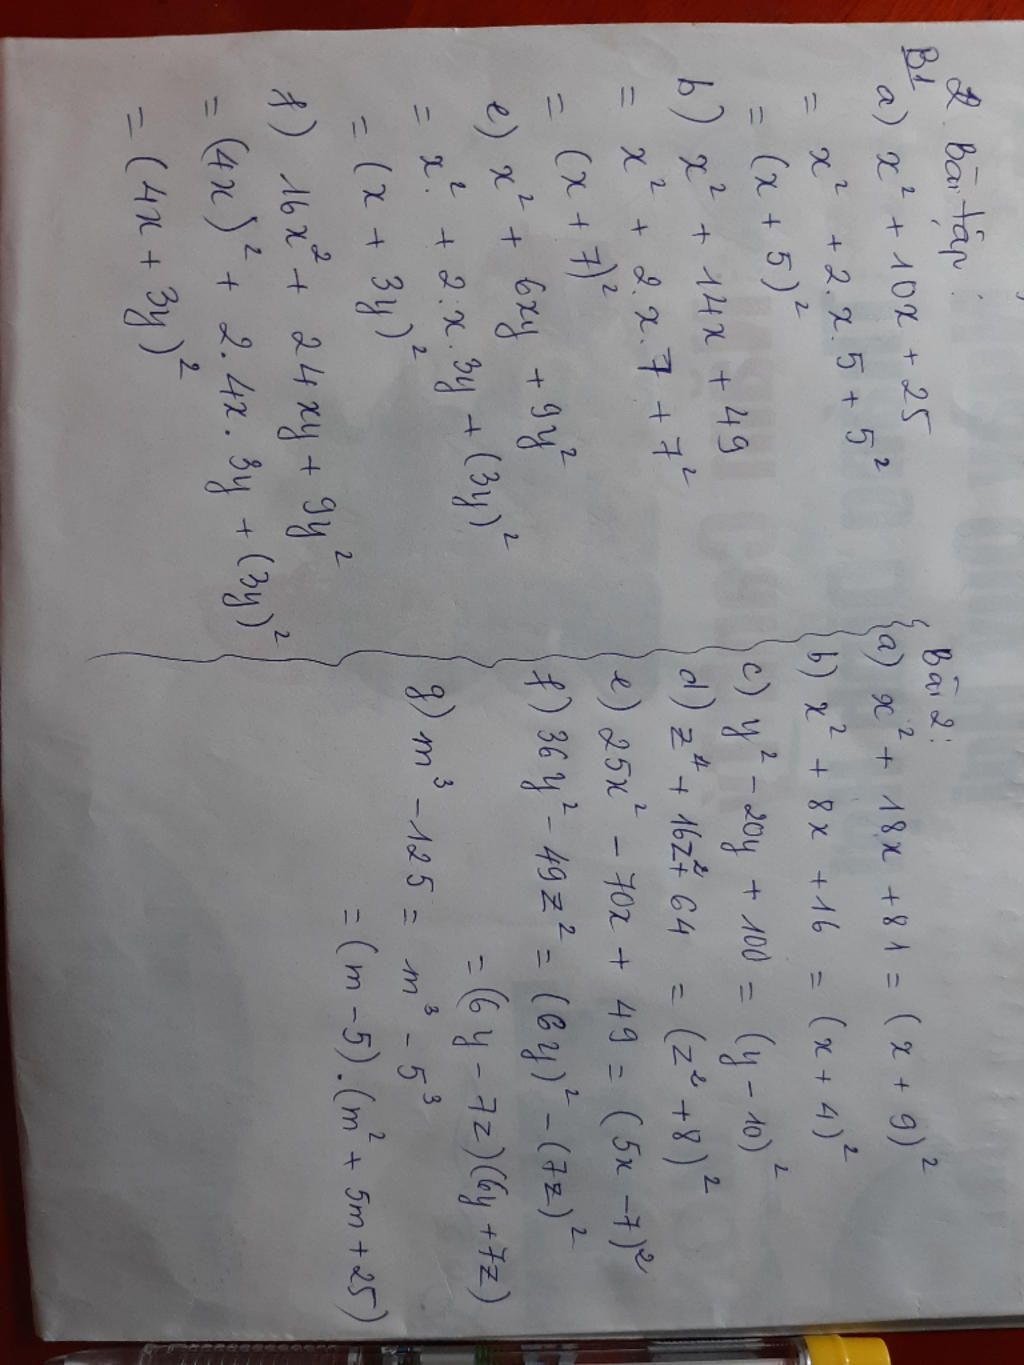 2. Bài tập:
B1
a) x² + 10x + 25
= x² + 2.x.5 + 5²
= (x + 5)²
b) x² + 14x + 49
= x² + 2.x.7 + 7²
= (x + 7)²
e) x² + 6xy + 9y²
= x² + 2.x.3y + (3y)²
= (x + 3y)²
f) 16x² + 24xy + 9y²
= (4x)² + 2.4x.3y + (3y)²
= (4x + 3y)²
Bài 2:
a) x² + 18x + 81 = (x + 9)²
b) x² + 8x + 16 = (x + 4)²
c) y² - 20y + 100 = (y - 10)²
d) z⁴ + 16z² + 64 = (z² + 8)²
e) 25x² - 70x + 49 = (5x - 7)²
f) 36y² - 49z² = (6y)² - (7z)²
= (6y - 7z)(6y + 7z)
g) m³ - 125 = m³ - 5³
= (m - 5).(m² + 5m + 25)